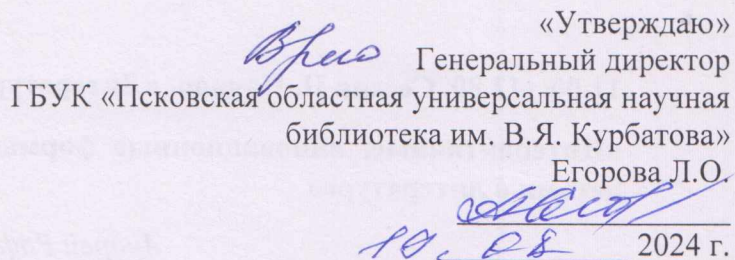 «Утверждаю»
Врио Генеральный директор
ГБУК «Псковская областная универсальная научная
библиотека им. В.Я. Курбатова»
Егорова Л.О.
2024 г.